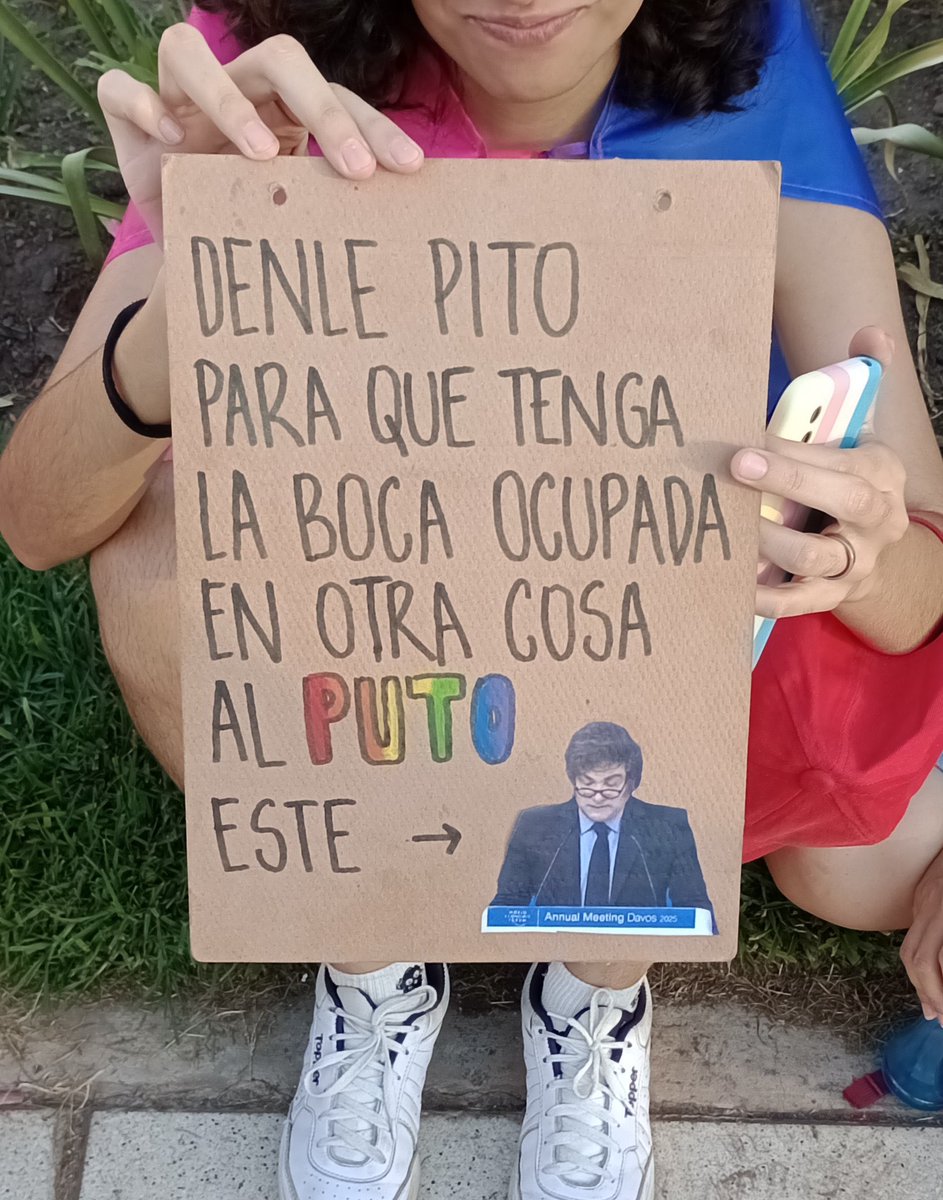 DENLE PITO
PARA QUE TENGA
LA BOCA OCUPADA
EN OTRA COSA
AL PUTO
ESTE →
Annual Meeting Davos 2025
Topper
Topper